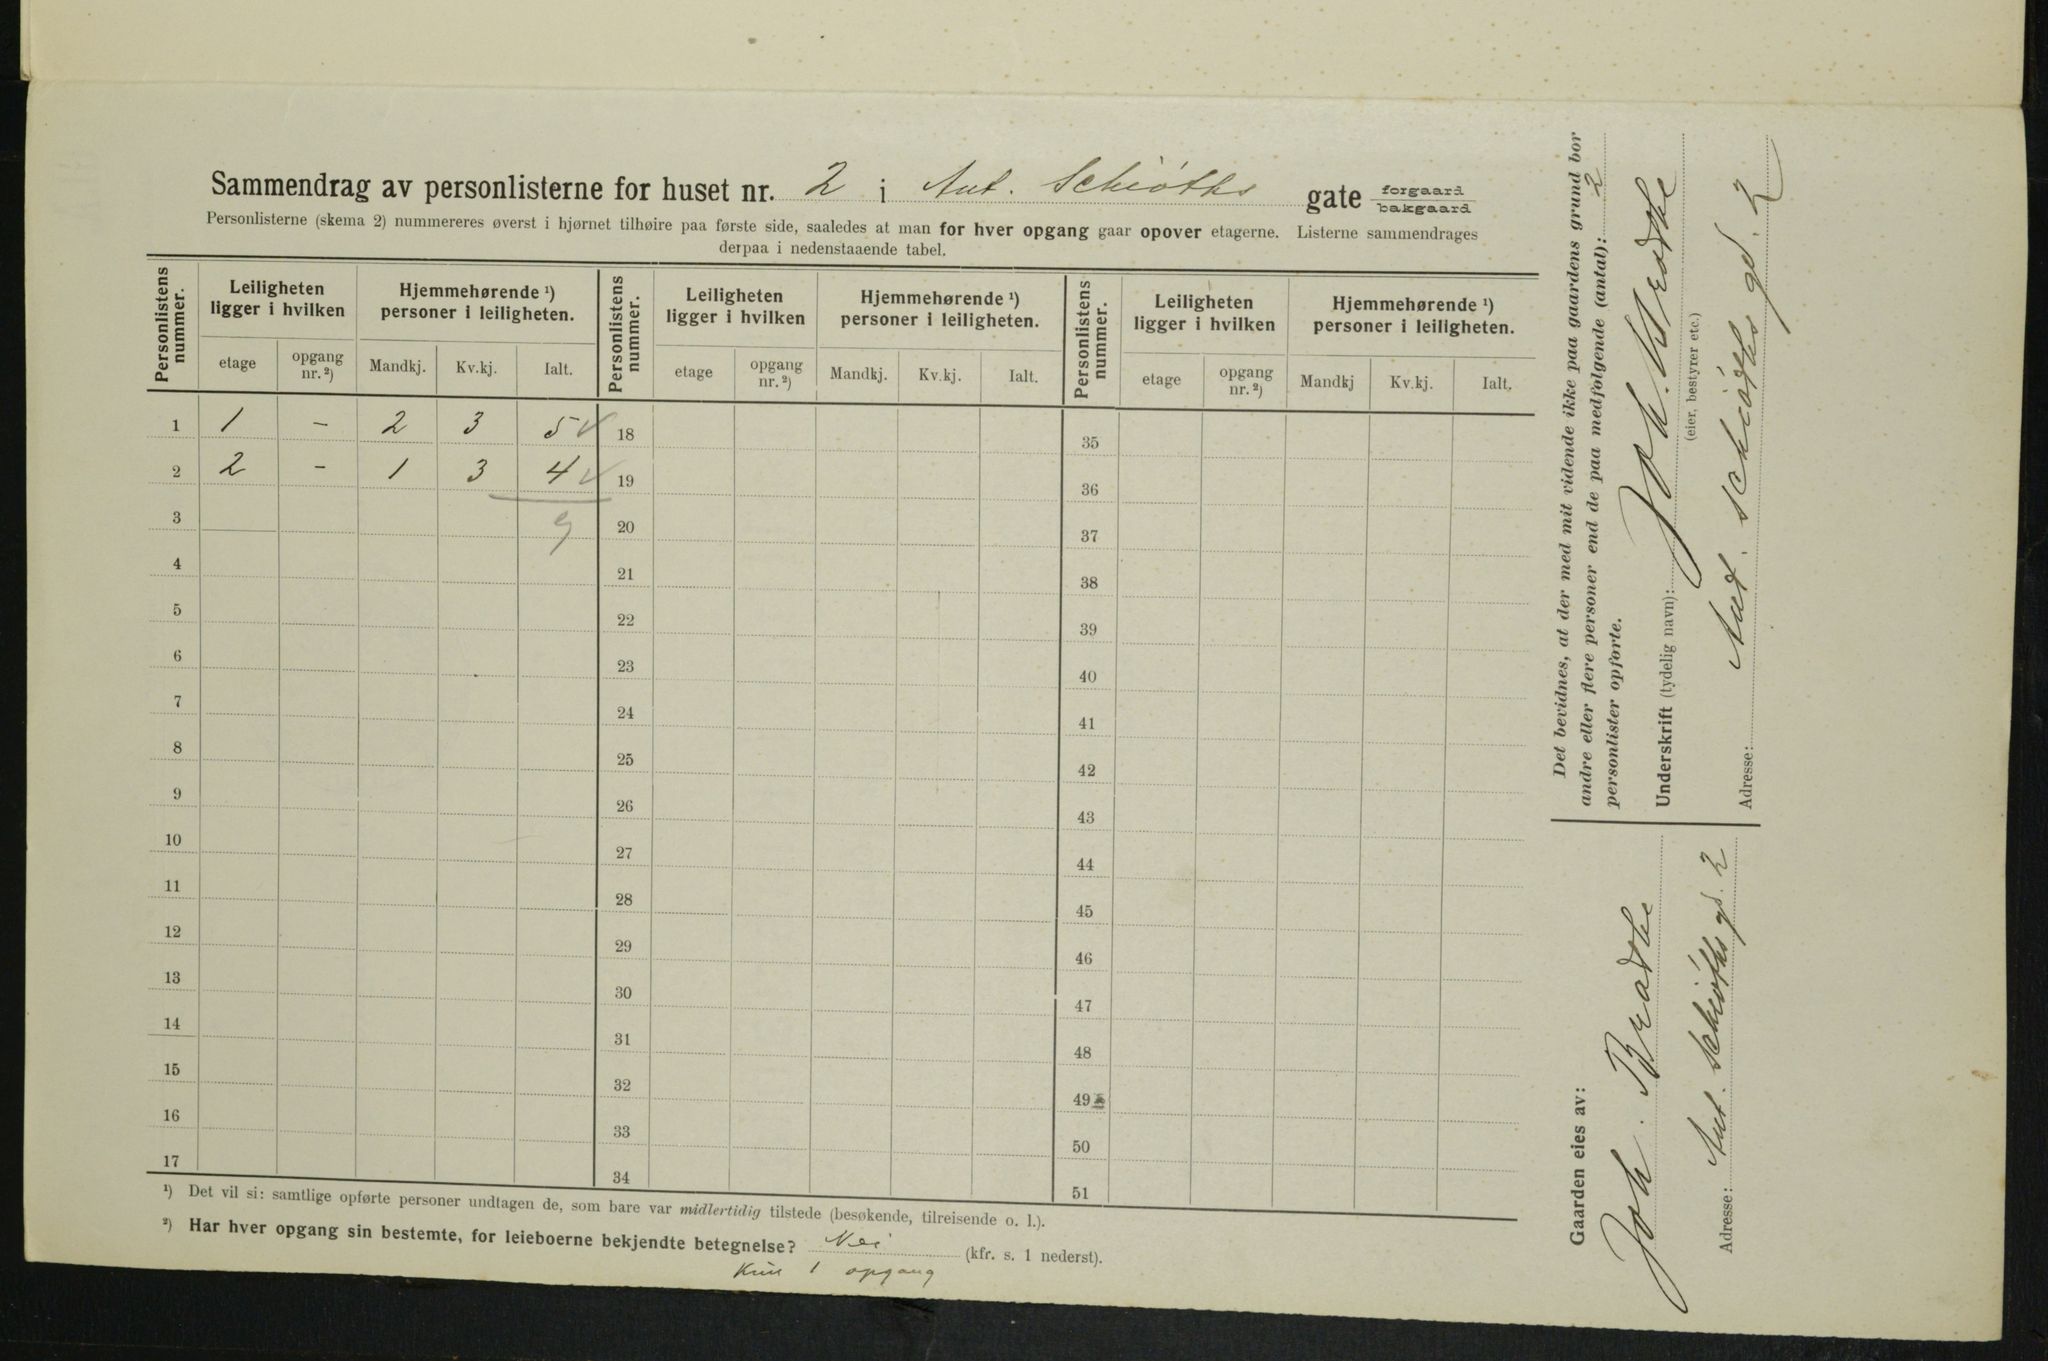 Sammendrag av personlisterne for huset nr. 2 i Ant. Schiøths gate forgaard bakgaard
Personlisterne (skema 2) nummereres øverst i hjørnet tilhøire paa første side, saaledes at man for hver opgang gaar opover etagerne. Listerne sammendrages
derpaa i nedenstaaende tabel.
Personlistens nummer. Leiligheten ligger i hvilken Hjemmehørende ¹) personer i leiligheten. Personlistens nummer. Leiligheten ligger i hvilken Hjemmehørende ¹) personer i leiligheten. Personlistens nummer. Leiligheten ligger i hvilken Hjemmehørende ¹) personer i leiligheten.
etage opgang nr. ²) Mandkj. Kv.kj. Ialt. etage opgang nr. ²) Mandkj. Kv.kj. Ialt. etage opgang nr. ²) Mandkj Kv.kj. Ialt.
1 1 – 2 3 5 ✓ 18 35
2 2 – 1 3 4 ✓ 19 36
3 9 20 37
4 21 38
5 22 39
6 23 40
7 24 41
8 25 42
9 26 43
10 27 44
11 28 45
12 29 46
13 30 47
14 31 48
15 32 49
16 33 50
17 34 51
¹) Det vil si: samtlige opførte personer undtagen de, som bare var midlertidig tilstede (besøkende, tilreisende o. l.).
²) Har hver opgang sin bestemte, for leieboerne bekjendte betegnelse? Nei (kfr. s. 1 nederst).
Kun 1 opgang
Det bevidnes, at der med mit vidende ikke paa gaardens grund bor
andre eller flere personer end de paa medfølgende (antal): 2
personlister opførte.
Underskrift (tydelig navn): Joh. Bradthe
(eier, bestyrer etc.)
Adresse: Ant. Schiøths gd. 2
Gaarden eies av:
Joh. Bradthe
Adresse: Ant. Schiøths gd. 2